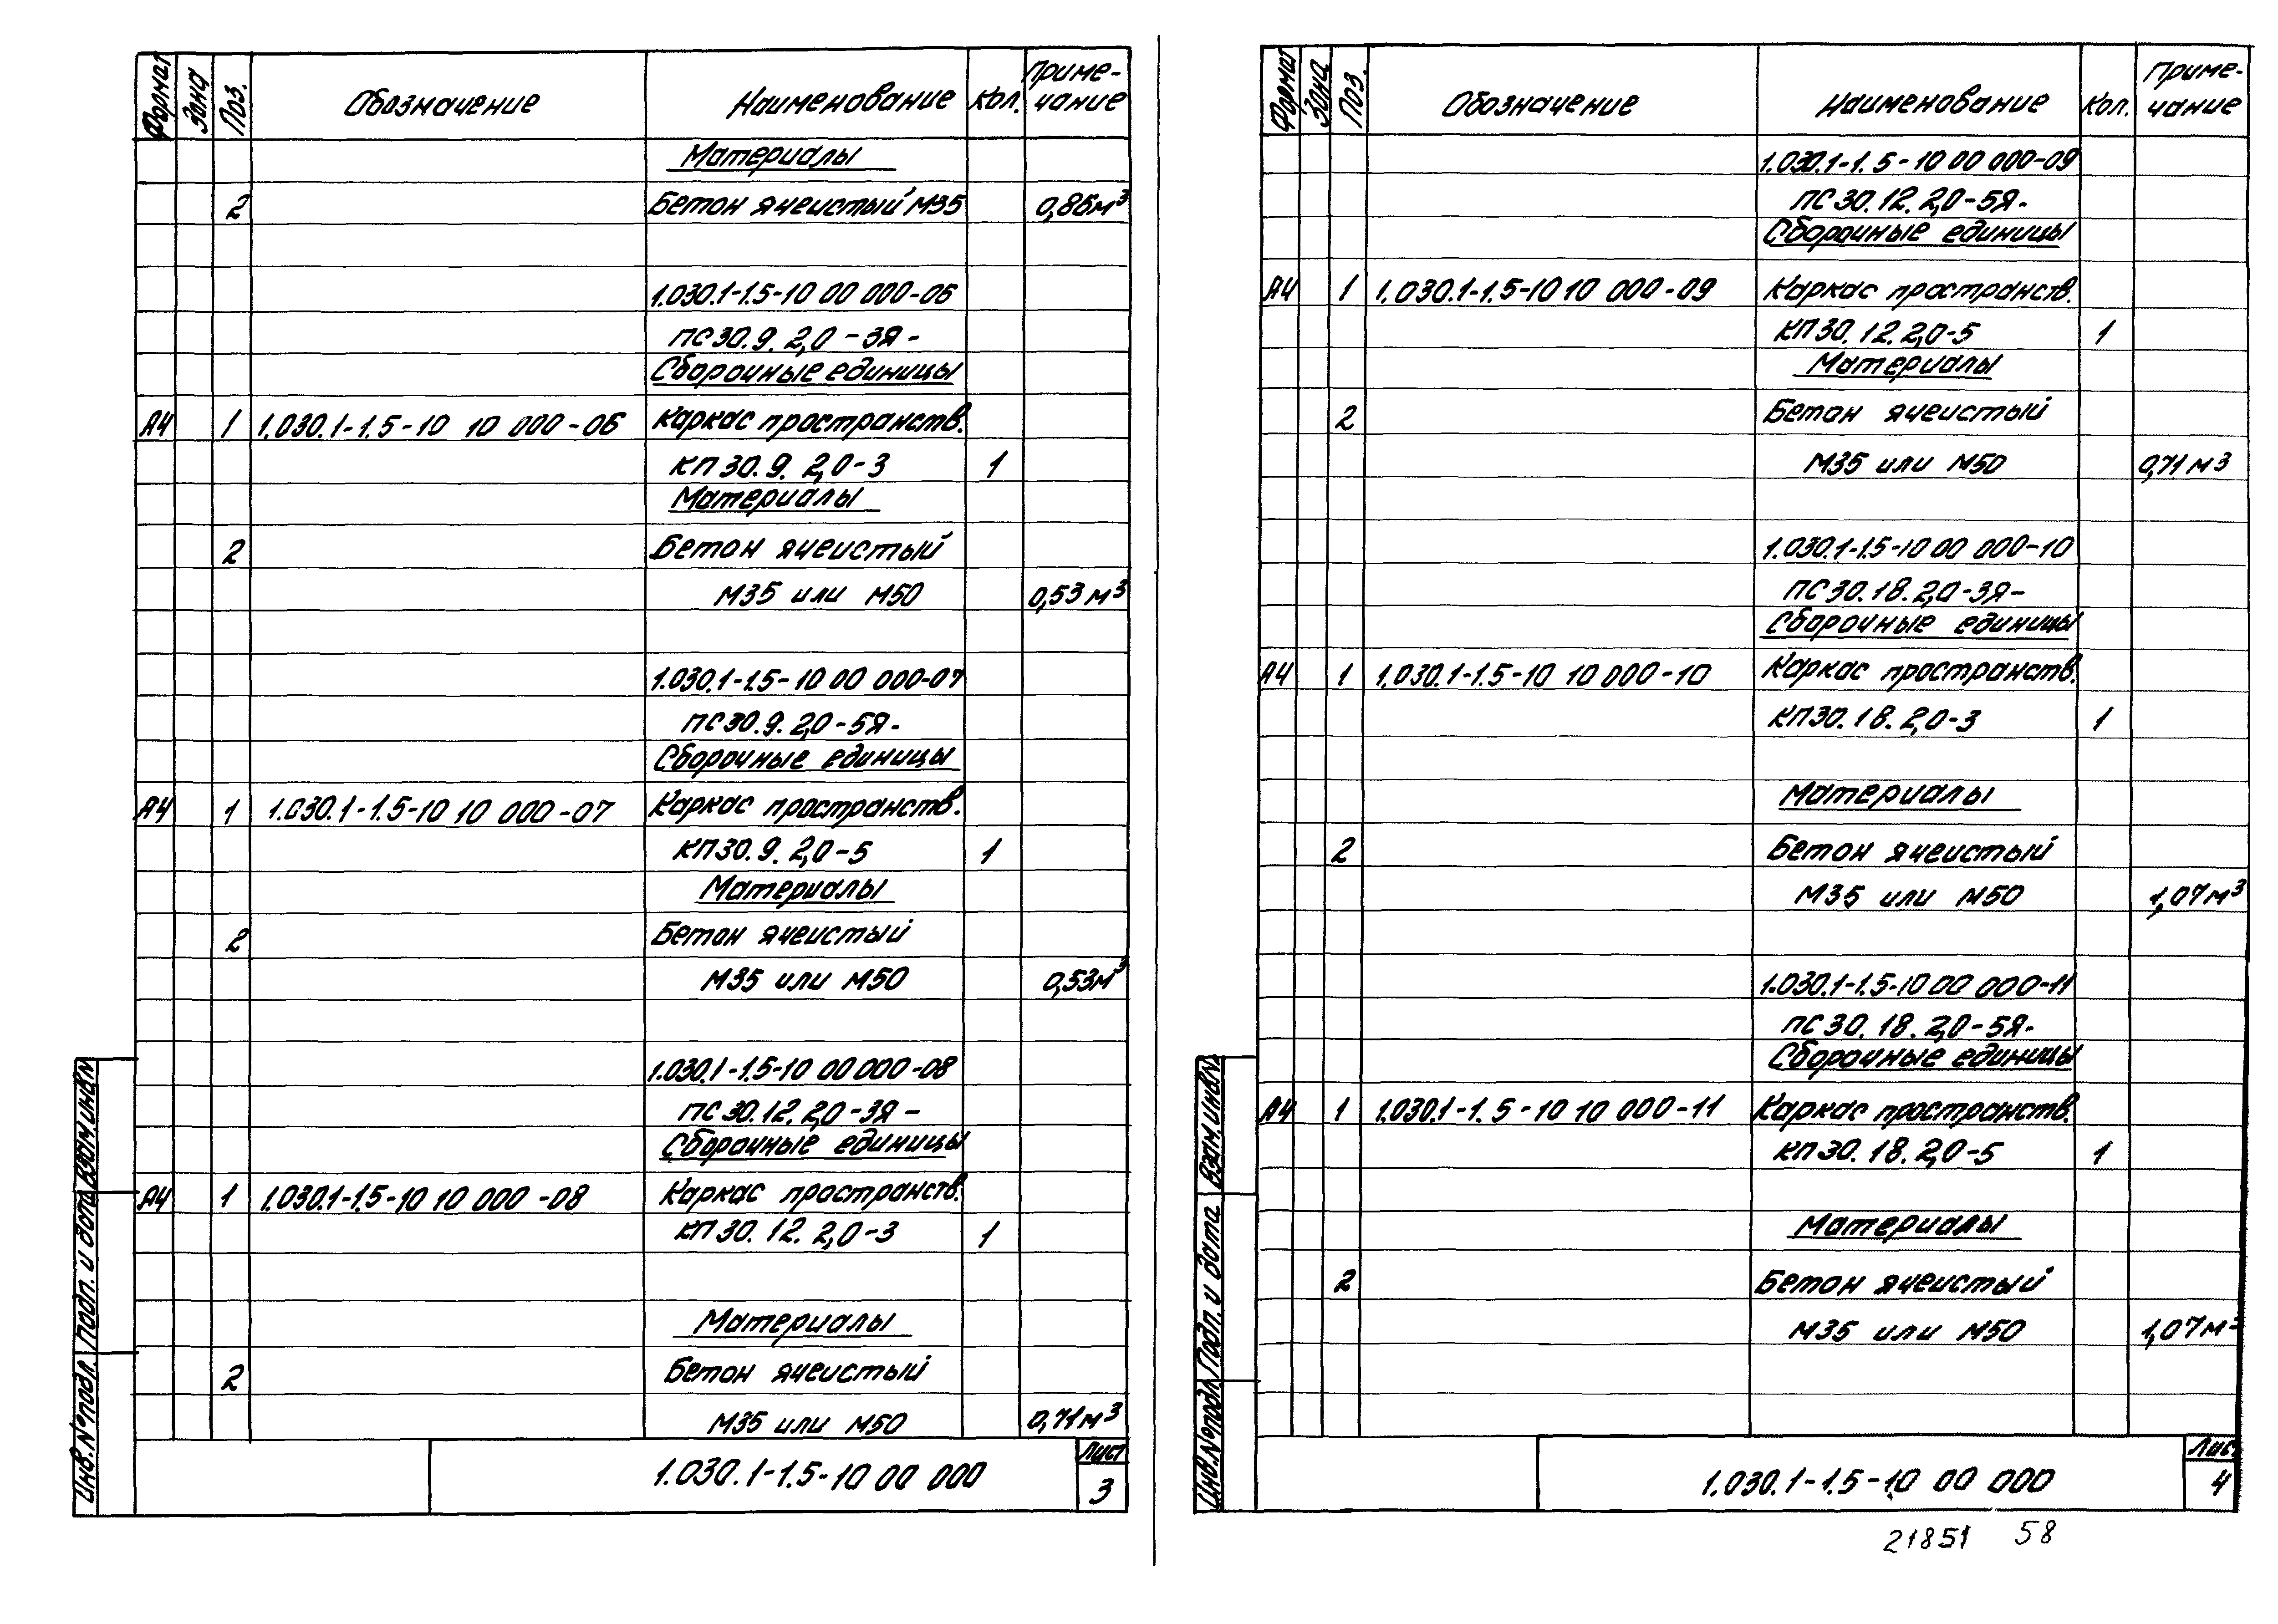 Формат Зона Поз. Обозначение Наименование Кол. Приме-чание
Материалы
2 Бетон ячеистый М35 0,86м³
1.030.1-1.5-10 00 000-06
ПС30.9.2,0-3Я-
Сборочные единицы
А4 1 1.030.1-1.5-10 10 000-06 Каркас пространств.
КП30.9.2,0-3 1
Материалы
2 Бетон ячеистый
М35 или М50 0,53м³
1.030.1-1.5-10 00 000-07
ПС30.9.2,0-5Я-
Сборочные единицы
А4 1 1.030.1-1.5-10 10 000-07 Каркас пространств.
КП30.9.2,0-5 1
Материалы
2 Бетон ячеистый
М35 или М50 0,53м³
1.030.1-1.5-10 00 000-08
ПС30.12.2,0-3Я-
Сборочные единицы
А4 1 1.030.1-1.5-10 10 000-08 Каркас пространств.
КП30.12.2,0-3 1
Материалы
2 Бетон ячеистый
М35 или М50 0,71м³
1.030.1-1.5-10 00 000
Лист
3
Инв.№подл. Подп. и дата Взам.инв№
Формат Зона Поз. Обозначение Наименование Кол. Приме-чание
1.030.1-1.5-10 00 000-09
ПС30.12.2,0-5Я-
Сборочные единицы
А4 1 1.030.1-1.5-10 10 000-09 Каркас пространств.
КП30.12.2,0-5 1
Материалы
2 Бетон ячеистый
М35 или М50 0,71м³
1.030.1-1.5-10 00 000-10
ПС30.18.2,0-3Я-
Сборочные единицы
А4 1 1.030.1-1.5-10 10 000-10 Каркас пространств.
КП30.18.2,0-3 1
Материалы
2 Бетон ячеистый
М35 или М50 1,07м³
1.030.1-1.5-10 00 000-11
ПС30.18.2,0-5Я-
Сборочные единицы
А4 1 1.030.1-1.5-10 10 000-11 Каркас пространств.
КП30.18.2,0-5 1
Материалы
2 Бетон ячеистый
М35 или М50 1,07м³
1.030.1-1.5-10 00 000
Лист
4
Инв.№подл. Подп. и дата Взам.инв№
21851 58